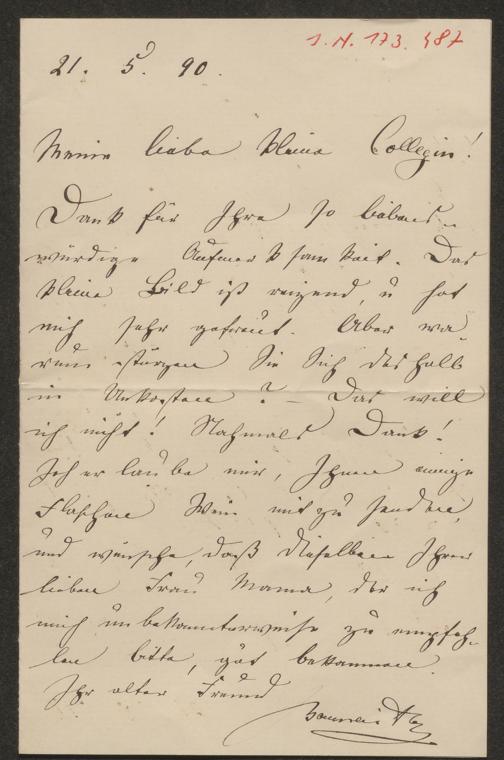 I. N. 173.487
21. 5. 90.
Meine liebe kleine Collegin!
Dank für Ihre so liebens-
würdige Aufmerksamkeit. Das
kleine Bild ist reizend, u hat
mich sehr gefreut. Aber wa
rum stürzen Sie Sich deshalb
in Unkosten? – Das will
ich nicht! Nochmals Dank!
Ich erlaube mir, Ihnen einige
Flaschen Wein mit zu senden,
und wünsche, daß dieselben Ihrer
lieben Frau Mama, der ich
mich unbekannterweise zu empfeh-
len bitte, gut bekommen.
Ihr alter Freund